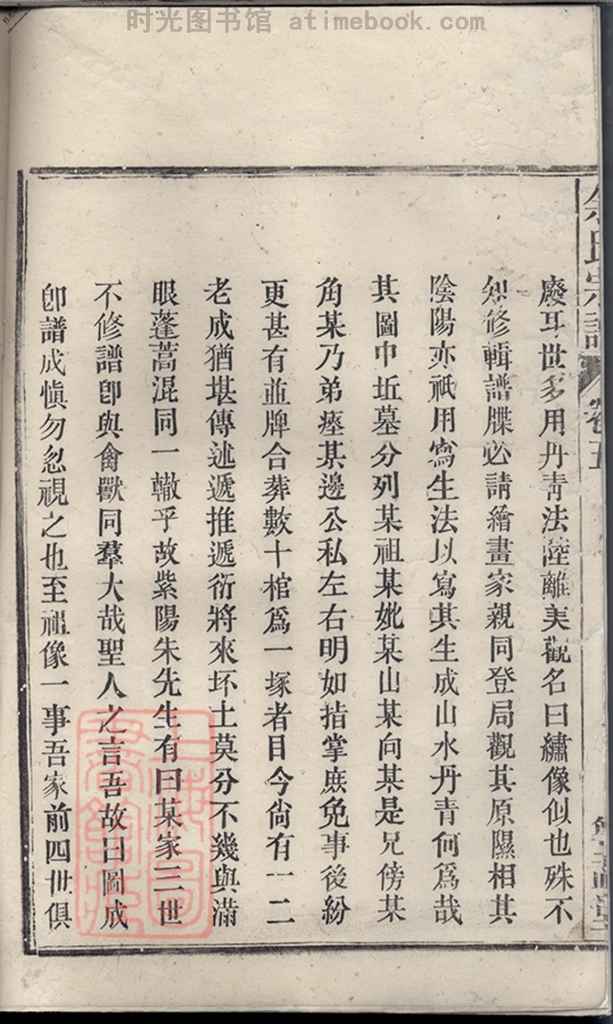 时光图书馆 atimebook.com
氏宗譜
卷五
廢耳世多用丹青法陸離美觀名曰繡像似也殊不
知修輯譜牒必請繪畫家親同登局觀其原隰相其
陰陽亦祇用寫生法以寫其生成山水丹青何爲哉
其圖中坵墓分列某祖某妣某山某向某是兄傍某
角某乃弟瘞某邊公私左右明如指掌庶免事後紛
更甚有並牌合葬數十棺爲一塚者目今尙有一二
老成猶堪傳述遞推遞衍將來坏土莫分不幾與滿
眼蓬蒿混同一轍乎故紫陽朱先生有曰某家三世
不修譜卽與禽獸同羣大哉聖人之言吾故曰圖成
卽譜成愼勿忽視之也至祖像一事吾家前四世俱